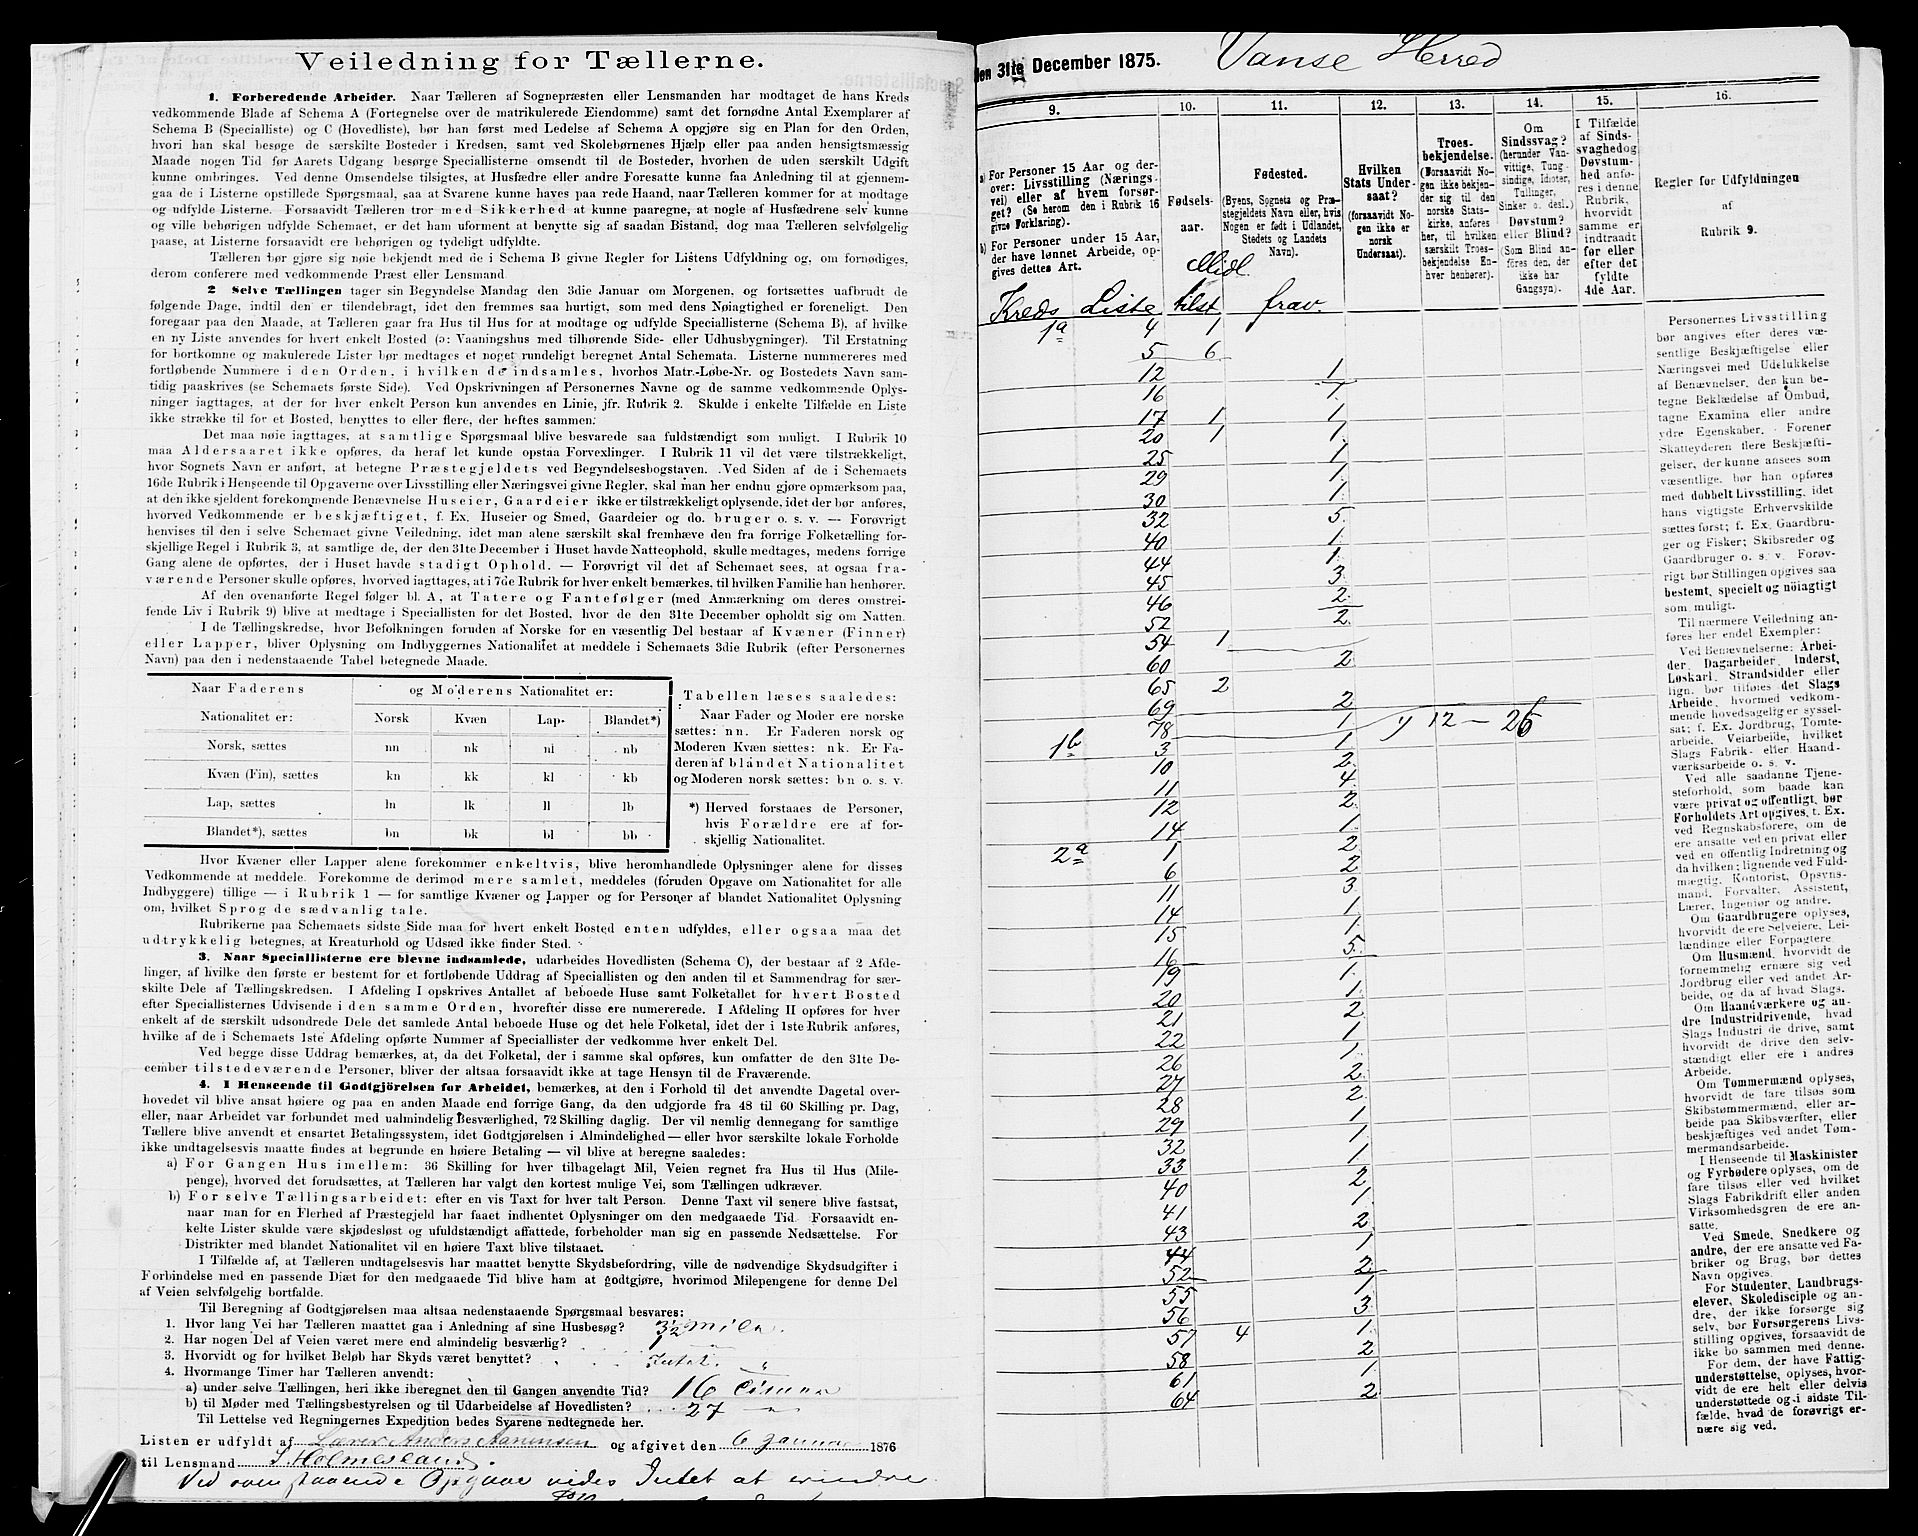 Veiledning for Tællerne.
1. Forberedende Arbeider. Naar Tælleren af Sognepræsten eller Lensmanden har modtaget de hans Kreds
vedkommende Blade af Schema A (Fortegnelse over de matrikulerede Eiendomme) samt det fornødne Antal Exemplarer af
Schema B (Specialliste) og C (Hovedliste), bør han først med Ledelse af Schema A opgjøre sig en Plan for den Orden,
hvori han skal besøge de særskilte Bosteder i Kredsen, samt ved Skolebørnenes Hjælp eller paa anden hensigtsmæssig
Maade nogen Tid før Aarets Udgang besørge Speciallisterne omsendt til de Bosteder, hvorhen de uden særskilt Udgift
kunne ombringes. Ved denne Omsendelse tilsigtes, at Husfædre eller andre Foresatte kunne faa Anledning til at gjennem-
gaa de i Listerne opstillede Spørgsmaal, saa at Svarene kunne haves paa rede Haand, naar Tælleren kommer for at modtage
og udfylde Listerne. Forsaavidt Tælleren tror med Sikkerhed at kunne paaregne, at nogle af Husfædrene selv kunne
og ville behørigen udfylde Schemaet, er det ham uforment at benytte sig af saadan Bistand, dog maa Tælleren selvfølgelig
paase, at Listerne forsaavidt ere behørigen og tydeligt udfyldte.
Tælleren bør gjøre sig nøie bekjendt med de i Schema B givne Regler for Listens Udfyldning og, om fornødiges,
derom conferere med vedkommende Præst eller Lensmand.
2 Selve Tællingen tager sin Begyndelse Mandag den 3die Januar om Morgenen, og fortsættes uafbrudt de
følgende Dage, indtil den er tilendebragt, idet den fremmes saa hurtigt, som med dens Nøiagtighed er foreneligt. Den
foregaar paa den Maade, at Tælleren gaar fra Hus til Hus for at modtage og udfylde Speciallisterne (Schema B), af hvilke
en ny Liste anvendes for hvert enkelt Bosted (ɔ: Vaaningshus med tilhørende Side- eller Udhusbygninger). Til Erstatning
for bortkomne og makulerede Lister bør medtages et noget rundeligt beregnet Antal Schemata. Listerne nummereres med
fortløbende Nummere i den Orden, i hvilken de indsamles, hvorhos Matr.-Løbe-Nr. og Bostedets Navn sam-
tidig paaskrives (se Schemaets første Side). Ved Opskrivningen af Personernes Navne og de samme vedkommende Oplys-
ninger iagttages, at der for hver enkelt Person kun anvendes en Linie, jfr. Rubrik 2. Skulde i enkelte Tilfælde en Liste
ikke strække til for et Bosted, benyttes to eller flere, der heftes sammen.
Det maa nøie iagttages, at samtlige Spørgsmaal blive besvarede saa fuldstændigt som muligt. I Rubrik 10
maa Aldersaaret ikke opføres, da heraf let kunde opstaa Forvexlinger. I Rubrik 11 vil det være tilstrækkeligt,
hvor Sognets Navn er anført, at betegne Præstegjeldets ved Begyndelsesbogstaven. Ved Siden af de i Schemaets
16de Rubrik i Henseende til Opgaverne over Livsstilling eller Næringsvei givne Regler, skal man her endnu gjøre opmærksom paa,
at den ikke sjeldent forekommende Benævnelse Huseier, Gaardeier ikke er tilstrækkeligt oplysende, idet der bør anføres,
hvorved Vedkommende er beskjæftiget, f. Ex. Huseier og Smed, Gaardeier og do. bruger o. s. v. — Forøvrigt
henvises til den i selve Schemaet givne Veiledning, idet man alene særskilt skal fremhæve den fra forrige Folketælling for-
skjellige Regel i Rubrik 3, at samtlige de, der den 31te December i Huset havde Natteophold, skulle medtages, medens forrige
Gang alene de opførtes, der i Huset havde stadigt Ophold. — Forøvrigt vil det af Schemaet sees, at ogsaa fra-
værende Personer skulle opføres, hvorved iagttages, at i 7de Rubrik for hver enkelt bemærkes, til hvilken Familie han henhører.
Af den ovenanførte Regel følger bl. A, at Tatere og Fantefølger (med Anmærkning om deres omstrei-
fende Liv i Rubrik 9) blive at medtage i Speciallisten for det Bosted, hvor de den 31te December opholdt sig om Natten.
I de Tællingskredse, hvor Befolkningen foruden af Norske for en væsentlig Del bestaar af Kvæner (Finner)
eller Lapper, bliver Oplysning om Indbyggernes Nationalitet at meddele i Schemaets 3die Rubrik (efter Personernes
Navn) paa den i nedenstaaende Tabel betegnede Maade.
Naar Faderens og Moderens Nationalitet er:
Nationalitet er: Norsk Kvæn Lap. Blandet*)
Norsk, sættes nn nk nl nb
Kvæn (Fin), sættes kn kk kl kb
Lap, sættes ln lk ll lb
Blandet*), sættes bn bk bl bb
Tabellen læses saaledes:
Naar Fader og Moder ere norske
sættes: nn. Er Faderen norsk og
Moderen Kvæn sættes: nk. Er Fa-
deren af blandet Nationalitet
og Moderen norsk sættes: bn o. s. v.
*) Herved forstaaes de Personer,
hvis Forældre ere af for-
skjellig Nationalitet.
Hvor Kvæner eller Lapper alene forekommer enkeltvis, blive heromhandlede Oplysninger alene for disses
Vedkommende at meddele. Forekomme de derimod mere samlet, meddeles (foruden Opgave om Nationalitet for alle
Indbyggere) tillige — i Rubrik 1 — for samtlige Kvæner og Lapper og for Personer af blandet Nationalitet Oplysning
om, hvilket Sprog de sædvanlig tale.
Rubrikerne paa Schemaets sidste Side maa for hvert enkelt Bosted enten udfyldes, eller ogsaa maa det
udtrykkelig betegnes, at Kreaturhold og Udsæd ikke finder Sted.
3. Naar Speciallisterne ere blevne indsamlede, udarbeides Hovedlisten (Schema C), der bestaar af 2 Afde-
linger, af hvilke den første er bestemt for et fortløbende Uddrag af Speciallisten og den anden til et Sammendrag for sær-
skilte Dele af Tællingskredsen. I Afdeling I opskrives Antallet af beboede Huse samt Folketallet for hvert Bosted
efter Speciallisternes Udvisende i den samme Orden, hvorefter disse ere numererede. I Afdeling II opføres for hver
enkelt af de særskilt udsondrede Dele det samlede Antal beboede Huse og det hele Folketal, idet der i 1ste Rubrik anføres,
hvilke af de i Schemaets 1ste Afdeling opførte Nummer af Speciallister der vedkomme hver enkelt Del.
Ved begge disse Uddrag bemærkes, at, da det Folketal, der i samme skal opføres, kun omfatter de den 31te De-
cember tilstedeværende Personer, bliver der altsaa forsaavidt ikke at tage Hensyn til de Fraværende.
4. I Henseende til Godtgjörelsen for Arbeidet, bemærkes, at den i Forhold til det anvendte Dagetal over-
hovedet vil blive ansat høiere og paa en anden Maade end forrige Gang, da den udgjorde fra 48 til 60 Skilling pr. Dag,
eller, naar Arbeidet var forbundet med ualmindelig Besværlighed, 72 Skilling daglig. Der vil nemlig dennegang for samtlige
Tællere blive anvendt et ensartet Betalingssystem, idet Godtgjørelsen i Almindelighed — eller hvor særskilte lokale Forholde
ikke undtagelsesvis maatte findes at begrunde en høiere Betaling — vil blive at beregne saaledes:
a) For Gangen Hus imellem: 36 Skilling for hver tilbagelagt Mil, Veien regnet fra Hus til Hus (Mile-
penge), hvorved det forudsættes, at Tælleren har valgt den kortest mulige Vei, som Tællingen udkræver.
b) For selve Tællingsarbeidet: efter en vis Taxt for hver talt Person. Denne Taxt vil senere blive fastsat,
naar man for en Flerhed af Præstegjeld har faaet indhentet Oplysninger om den medgaaede Tid. Forsaavidt en-
kelte Lister skulde være skjødesløst og ufuldstændigt affattede, forbeholder man sig en passende Nedsættelse. For
Distrikter med blandet Nationalitet vil en høiere Taxt blive tilstaaet.
I Tilfælde af, at Tælleren undtagelsesvis har maattet benytte Skydsbefordring, ville de nødvendige Skydsudgifter i
Forbindelse med en passende Diæt for den medgaaede Tid blive ham at godtgjøre, hvorimod Milepengene for denne Del
af Veien selvfølgelig bortfalde.
Til Beregning af Godtgjørelsen maa altsaa nedenstaaende Spørgsmaal besvares:
1. Hvor lang Vei har Tælleren maattet gaa i Anledning af sine Husbesøg? 3½ Mile.
2. Har nogen Del af Veien været mere end almindelig besværlig? 1
3. Hvorvidt og for hvilket Beløb har Skyds været benyttet? Intet. "
4. Hvormange Timer har Tælleren anvendt:
a) under selve Tællingen, heri ikke iberegnet den til Gangen anvendte Tid? 16 Timer
b) til Møder med Tællingsbestyrelsen og til Udarbeidelse af Hovedlisten? 27 "
Til Lettelse ved Regningernes Expedition bedes Svarene nedtegnede her.
Listen er udfyldt af Lærer Anders Aanensen og afgivet den 6 Januar 1876
til Lensmand S Holmesland.
Ved ovenstaaende Opgave vides Intet at erindre
den 31te December 1875. Vanse Herred
9. 10. 11. 12. 13. 14. 15. 16.
a) For Personer 15 Aar og der-
over: Livsstilling (Nærings-
vei) eller af hvem forsør-
get? (Se herom den i Rubrik 16
givne Forklaring).
b) For Personer under 15 Aar,
der have lønnet Arbeide, op-
gives dettes Art.
Fødsels-
aar.
Fødested.
(Byens, Sognets og Præ-
stegjeldets Navn eller, hvis
Nogen er født i Udlandet,
Stedets og Landets
Navn).
Hvilken
Stats Under-
saat?
(forsaavidt No-
gen ikke er
norsk
Undersaat).
Troes-
bekjendelse.
(Forsaavidt No-
gen ikke bekjen-
der sig til den
norske Stats-
kirke, anføres
her, til hvilken
særskilt Troes-
bekjendelse En-
hver henhører).
Om
Sindssvag?
(herunder Van-
vittige, Tung-
sindige, Idioter,
Tullinger,
Sinker o. desl.)
Døvstum?
eller Blind?
(Som Blind an-
føres den, der
ikke har
Gangsyn).
I Tilfælde
af Sinds-
svaghed og
Døvstum-
hed anfø-
res i denne
Rubrik,
hvorvidt
samme er
indtraadt
før eller
efter det
fyldte
4de Aar.
Regler for Udfyldningen
af
Rubrik 9.
Midl.
Kreds Liste tilst frav.
1a 4 1
5 6
12 1
16 1.
17 1 1
20 1 1.
25 1
29 1
30 1.
32 5.
40 1.
44 1.
45 3
46 2
52 2
54 1
60 2
65 2
69 2
78 1 12 — 26
1b 3 1
10 2
11 4
12 2
14 1.
2a 1 2
6 2
11 3
14 1
15 1.
16 5.
19 1.
20 1.
21 2
22 1
26 1.
27 2
28 2
29 1
32 1
33 1
40 2
41 1.
43 2
44 1
52 2
55 1
56 3
57 4 1.
58 2
61 1
64 2
Personernes Livsstilling
bør angives efter deres væ-
sentlige Beskjæftigelse eller
Næringsvei med Udelukkelse
af Benævnelser, der kun be-
tegne Beklædelse af Ombud,
tagne Examina eller andre
ydre Egenskaber. Forener
Skatteyderen flere Beskjæfti-
gelser, der kunne ansees som
væsentlige, bør han opføres
med dobbelt Livsstilling, idet
hans vigtigste Erhvervskilde
sættes først; f. Ex. Gaardbru-
ger og Fisker; Skibsreder og
Gaardbruger o. s. v. Forøv-
rigt bør Stillingen opgives saa
bestemt, specielt og nöiagtigt
som muligt.
Til nærmere Veiledning an-
føres her endel Exempler:
Ved Benævnelserne: Arbei-
der, Dagarbeider, Inderst,
Løskarl, Strandsidder eller
lign. bør tilføies det Slags
Arbeide, hvormed vedkom-
mende hovedsagelig er syssel-
sat; f. Ex. Jordbrug, Tomte-
arbeide, Veiarbeide, hvilket
Slags Fabrik- eller Haand-
værksarbeide o. s. v.
Ved alle saadanne Tjene-
steforhold, som baade kan
være privat og offentligt, bør
Forholdets Art opgives, f. Ex.
ved Regnskabsførere, om de
ere ansatte ved en privat eller
ved en offentlig Indretning og
da hvilken; lignende ved Fuld-
mægtig, Kontorist, Opsyns-
mand, Forvalter, Assistent,
Lærer, Ingeniør og andre.
Om Gaardbrugere oplyses,
hvorvidt de ere Selveiere, Lei-
lændinge eller Forpagtere.
Om Husmænd, hvorvidt de
fornemmelig ernære sig ved
Jordbrug eller ved andet Ar-
beide, og da af hvad Slags.
Om Haandværkere og an-
dre Industridrivende, hvad
Slags Industri de drive, samt
hvorvidt de drive den selv-
stændigt eller ere i andres
Arbeide.
Om Tømmermænd oplyses,
hvorvidt de fare tilsøs som
Skibstømmermænd, eller ar-
beide paa Skibsværfter, eller
beskjæftiges ved andet Tøm-
mermandsarbeide.
I Henseende til Maskinister
og Fyrbødere oplyses, om de
fare tilsøs eller ved hvilket
Slags Fabrikdrift eller anden
Virksomhedsgren de ere an-
satte.
Ved Smede, Snedkere og
andre, der ere ansatte ved Fa-
briker og Brug, bør dettes
Navn opgives.
For Studenter, Landbrugs-
elever, Skoledisciple og an-
dre, der ikke forsørge sig
selv, bør Forsørgerens Livs-
stilling opgives, forsaavidt de
ikke bo sammen med denne.
For dem, der have Fattig-
understøttelse, oplyses, hvor-
vidt de ere helt eller delvis
understøttede og i sidste Til-
fælde, hvad de forøvrigt er-
nære sig ved.